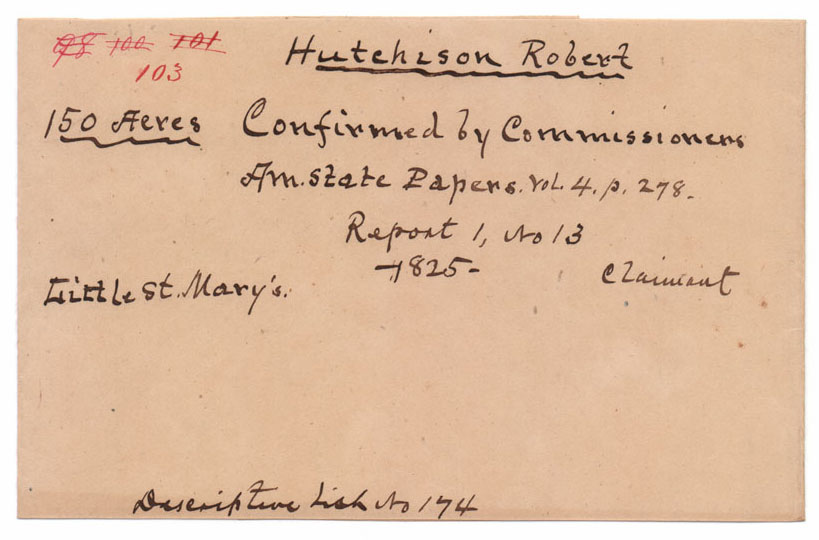 98 100 101
103
Hutchison Robert
150 Acres Confirmed by Commissioners
Am. State Papers. Vol. 4. p. 278.
Report 1, No 13
1825-
Claimant
Little St. Mary's.
Descriptive List No 174